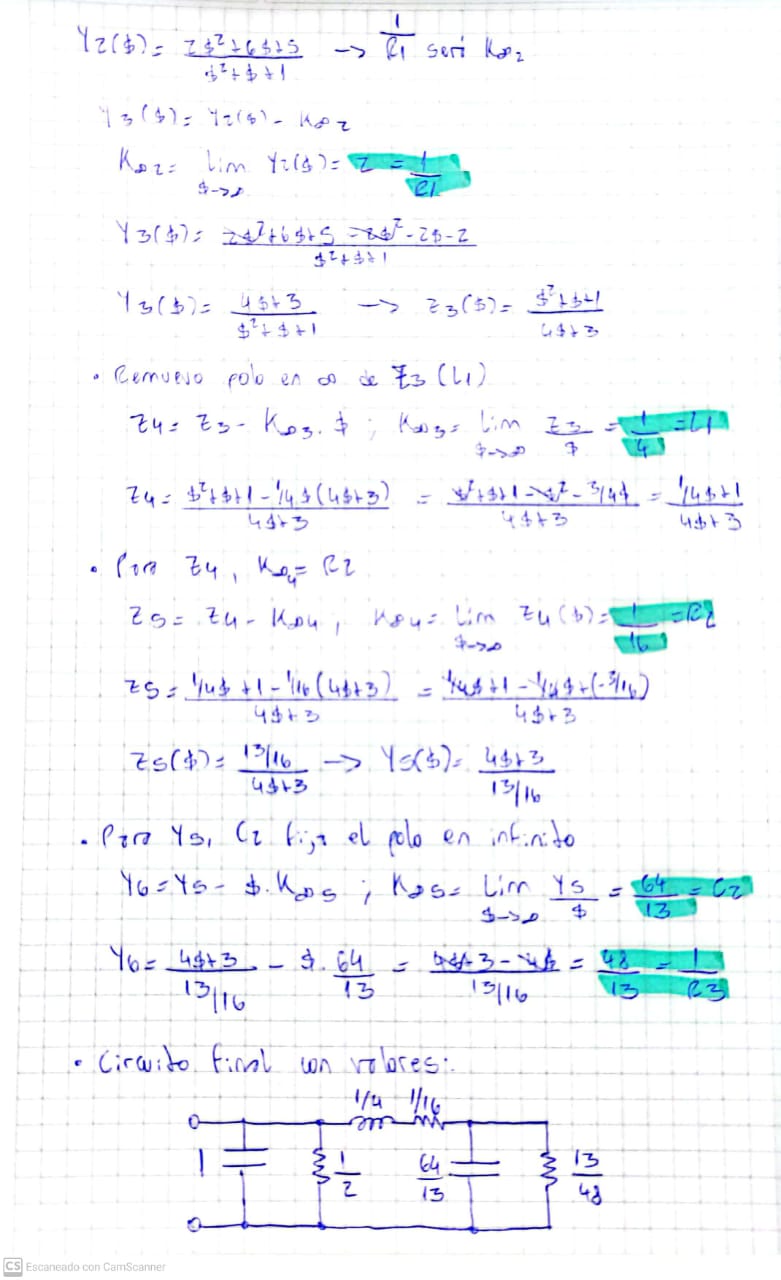 Y2($) = 2$²+6$+5 / $²+$+1 → 1/R1 será K∞2
Y3($) = Y2($) - K∞2
K∞2 = lim $→∞ Y2($) = 2 = 1/R1
Y3($) = 2$²+6$+5 -2$²-2$-2 / $²+$+1
Y3($) = 4$+3 / $²+$+1 → Z3($) = $²+$+1 / 4$+3
• Remuevo polo en ∞ de Z3 (L1)
Z4 = Z3 - K∞3.$ ; K∞3 = lim $→∞ Z3/$ = 1/4 = L1
Z4 = $²+$+1-1/4$(4$+3) / 4$+3 = $²+$+1-$²-3/4$ / 4$+3 = 1/4$+1 / 4$+3
• Para Z4, K∞4 = R2
Z5 = Z4 - K∞4, K∞4 = lim $→∞ Z4($) = 1/16 = R2
Z5 = 1/4$+1-1/16(4$+3) / 4$+3 = 1/4$+1-1/4$+(-3/16) / 4$+3
Z5($) = 13/16 / 4$+3 → Y5($) = 4$+3 / 13/16
• Para Y5, C2 fija el polo en infinito
Y6 = Y5 - $.K∞5 ; K∞5 = lim $→∞ Y5/$ = 64/13 = C2
Y6 = 4$+3 / 13/16 - $. 64/13 = 4$+3-4$ / 13/16 = 48/13 = 1/R3
• Circuito final con valores:
1/4 1/16
1 1/2 64/13 13/48
CS Escaneado con CamScanner